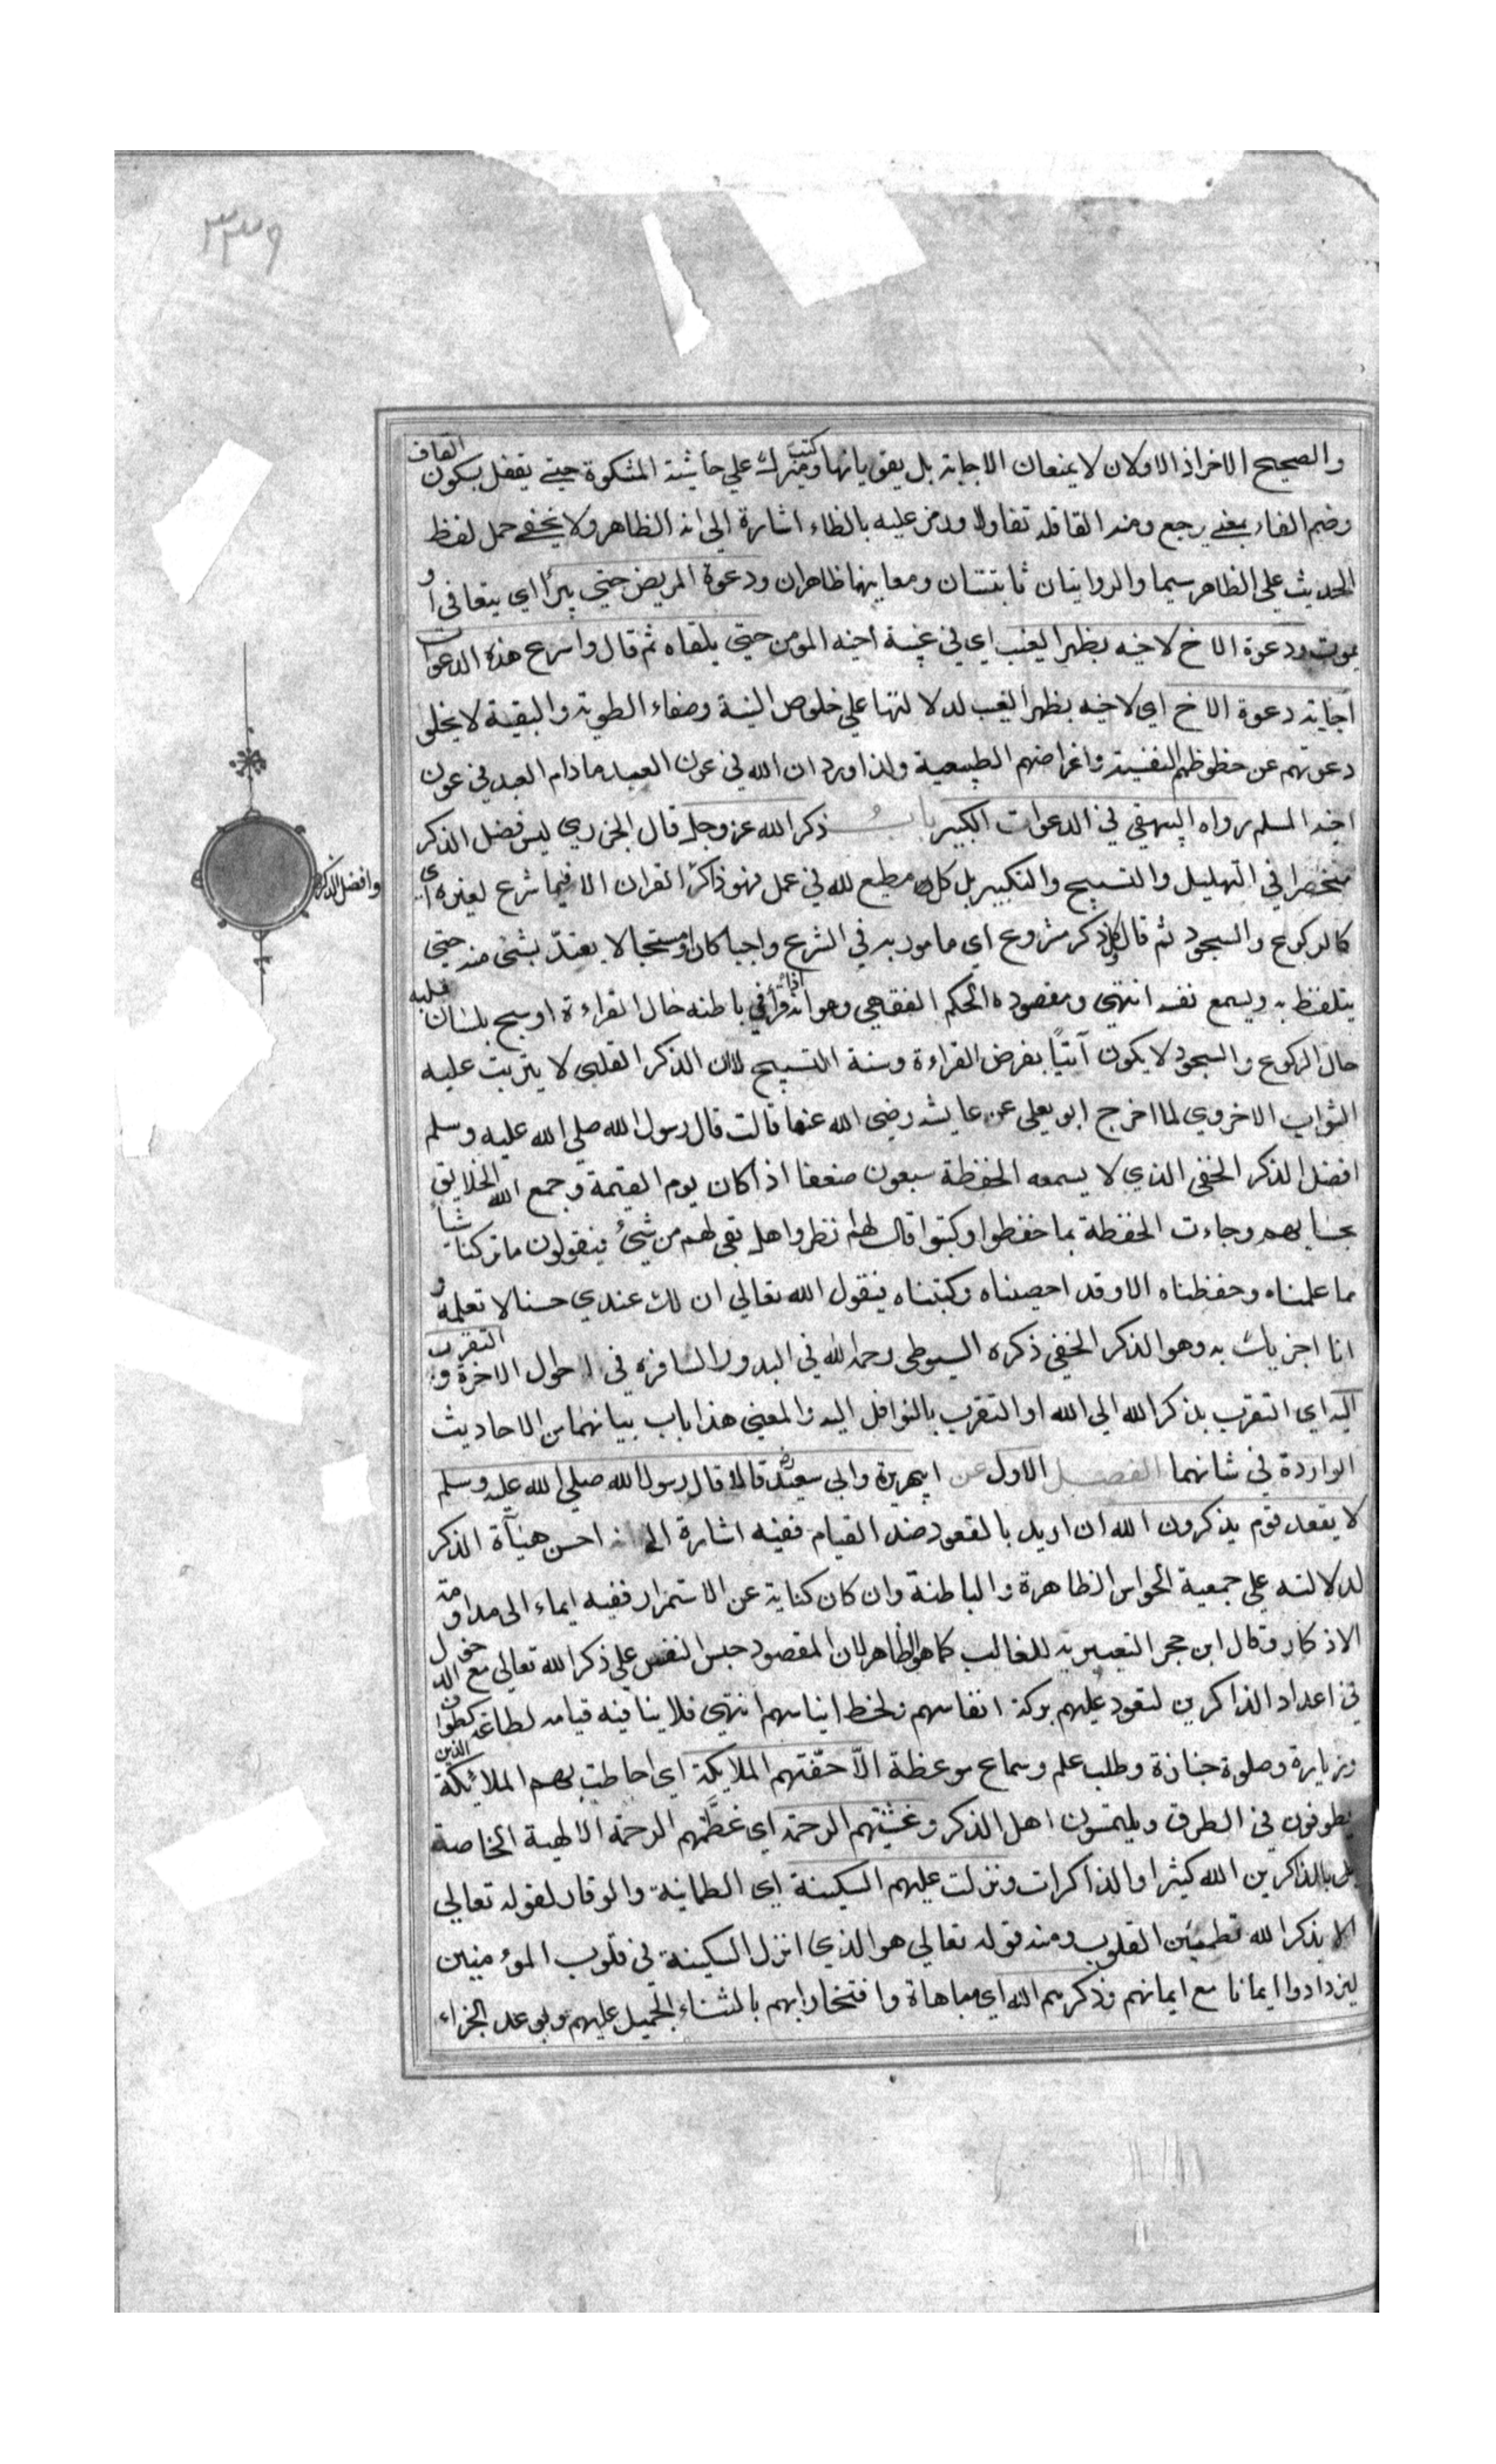 ٣٣٩
والصحيح الاخراذ الاولان لا يمنعان الاجابة بل يقويانها وكتب ميرك علي حاشية المشكوة حتي يقفل بسكون القاف
وضم الفاء بمعني رجع ومنه القافلة تفاولا ورمز عليه بالظاء اشارة الي انه الظاهر ولا يخفي حمل لفظ
الحديث علي الظاهر سيما والروايتان ثابتتان ومعاينهما ظاهران ودعوة المريض حتي يبرأ اي يتعافي او
يموت ودعوة الاخ لاخيه بظهر الغيب اي في غيبة أخيه المومن حتي يلقاه ثم قال واسرع هذه الدعوات
اجابة دعوة الاخ اي لاخيه بظهر الغيب لدلالتها علي خلوص النية وصفاء الطوية والبقية لا يخلو
دعوتهم عن حظوظهم النفسية واغراضهم الطبيعية ولذا ورد ان الله في عون العبد مادام العبد في عون
اخيه المسلم رواه البيهقي في الدعوات الكبير باب ذكر الله عز وجل قال الجزري ليس فضل الذكر
منحصرا في التهليل والتسبيح والتكبير بل كل مطيع لله في عمل فهو ذاكر القران الا فيما شرع لغيره اي
وافضل الذكر
كالركوع والسجود ثم قال وكل ذكر مشروع اي مامور به في الشرع واجبا كان او مستحبا لا يعتد بشئ منه حتي
يتلفظ به ويسمع نفسه انتهي ومقصوده الحكم الفقهي وهو انه اذا قرأ في باطنه حال القراءة او سبح بلسان قلبه
حال الركوع والسجود لا يكون آتيًا بفرض القراءة وسنة التسبيح لان الذكر القلبي لا يترتب عليه
الثواب الاخروي لما اخرج ابو يعلي عن عايشه رضي الله عنها قالت قال رسول الله صلي الله عليه وسلم
افضل الذكر الخفي الذي لا يسمعه الحفظة سبعون ضعفا اذا كان يوم القيمة وجمع الله الخلايق
بحسابهم وجاءت الحفظة بما حفظوا وكتبوا قال لهم انظروا هل بقي لهم من شئ فيقولون ما تركنا شيأ
مما علمناه وحفظناه الا وقد احصيناه وكتبناه فيقول الله تعالي ان لك عندي حسنا لا تعلمه و
انا اجزيك به وهو الذكر الخفي ذكره السيوطي رحمه الله في البدور السافرة في احوال الاخرة و التقرب
اليه اي التقرب بذكر الله الي الله او التقرب بالنوافل اليه والمعني هذا باب بيانهما من الاحاديث
الواردة في شانهما الفصل الاول عن ابي هريرة وابي سعيد رض قالا قال رسول الله صلي الله عليه وسلم
لا يقعد قوم يذكرون الله ان اريد بالقعود ضد القيام ففيه اشارة الي انه احسن هيأة الذكر
لدلالته علي جمعية الحواس الظاهرة والباطنة وان كان كناية عن الاستمرار ففيه ايماء الي مداومة
الاذكار وقال ابن حجر التعبير به للغالب كما هو الظاهر لان المقصود حبس النفس علي ذكر الله تعالي مع الدخول
في اعداد الذاكرين لتعود عليهم بركة انفاسهم ولحظ ايناسهم انتهي فلا ينافيه قيامه لطاعة كطواف
وزيارة وصلوة جنازة وطلب علم وسماع موعظة الاّ حفّتهم الملايكة اي احاطت بهم الملائكة الذين
يطوفون في الطرق ويلتمسون اهل الذكر وغشيتهم الرحمة اي غطّتهم الرحمة الالهية الخاصة
بالذاكرين الله كثيرا والذاكرات ونزلت عليهم السكينة اي الطمانينة والوقار لقوله تعالي
الا بذكر الله تطمئن القلوب ومنه قوله تعالي هو الذي انزل السكينة في قلوب المؤمنين
ليزدادوا ايمانا مع ايمانهم وذكرهم الله اي مباهاة وافتخارا بهم بالثناء الجميل عليهم وبوعد الجزاء